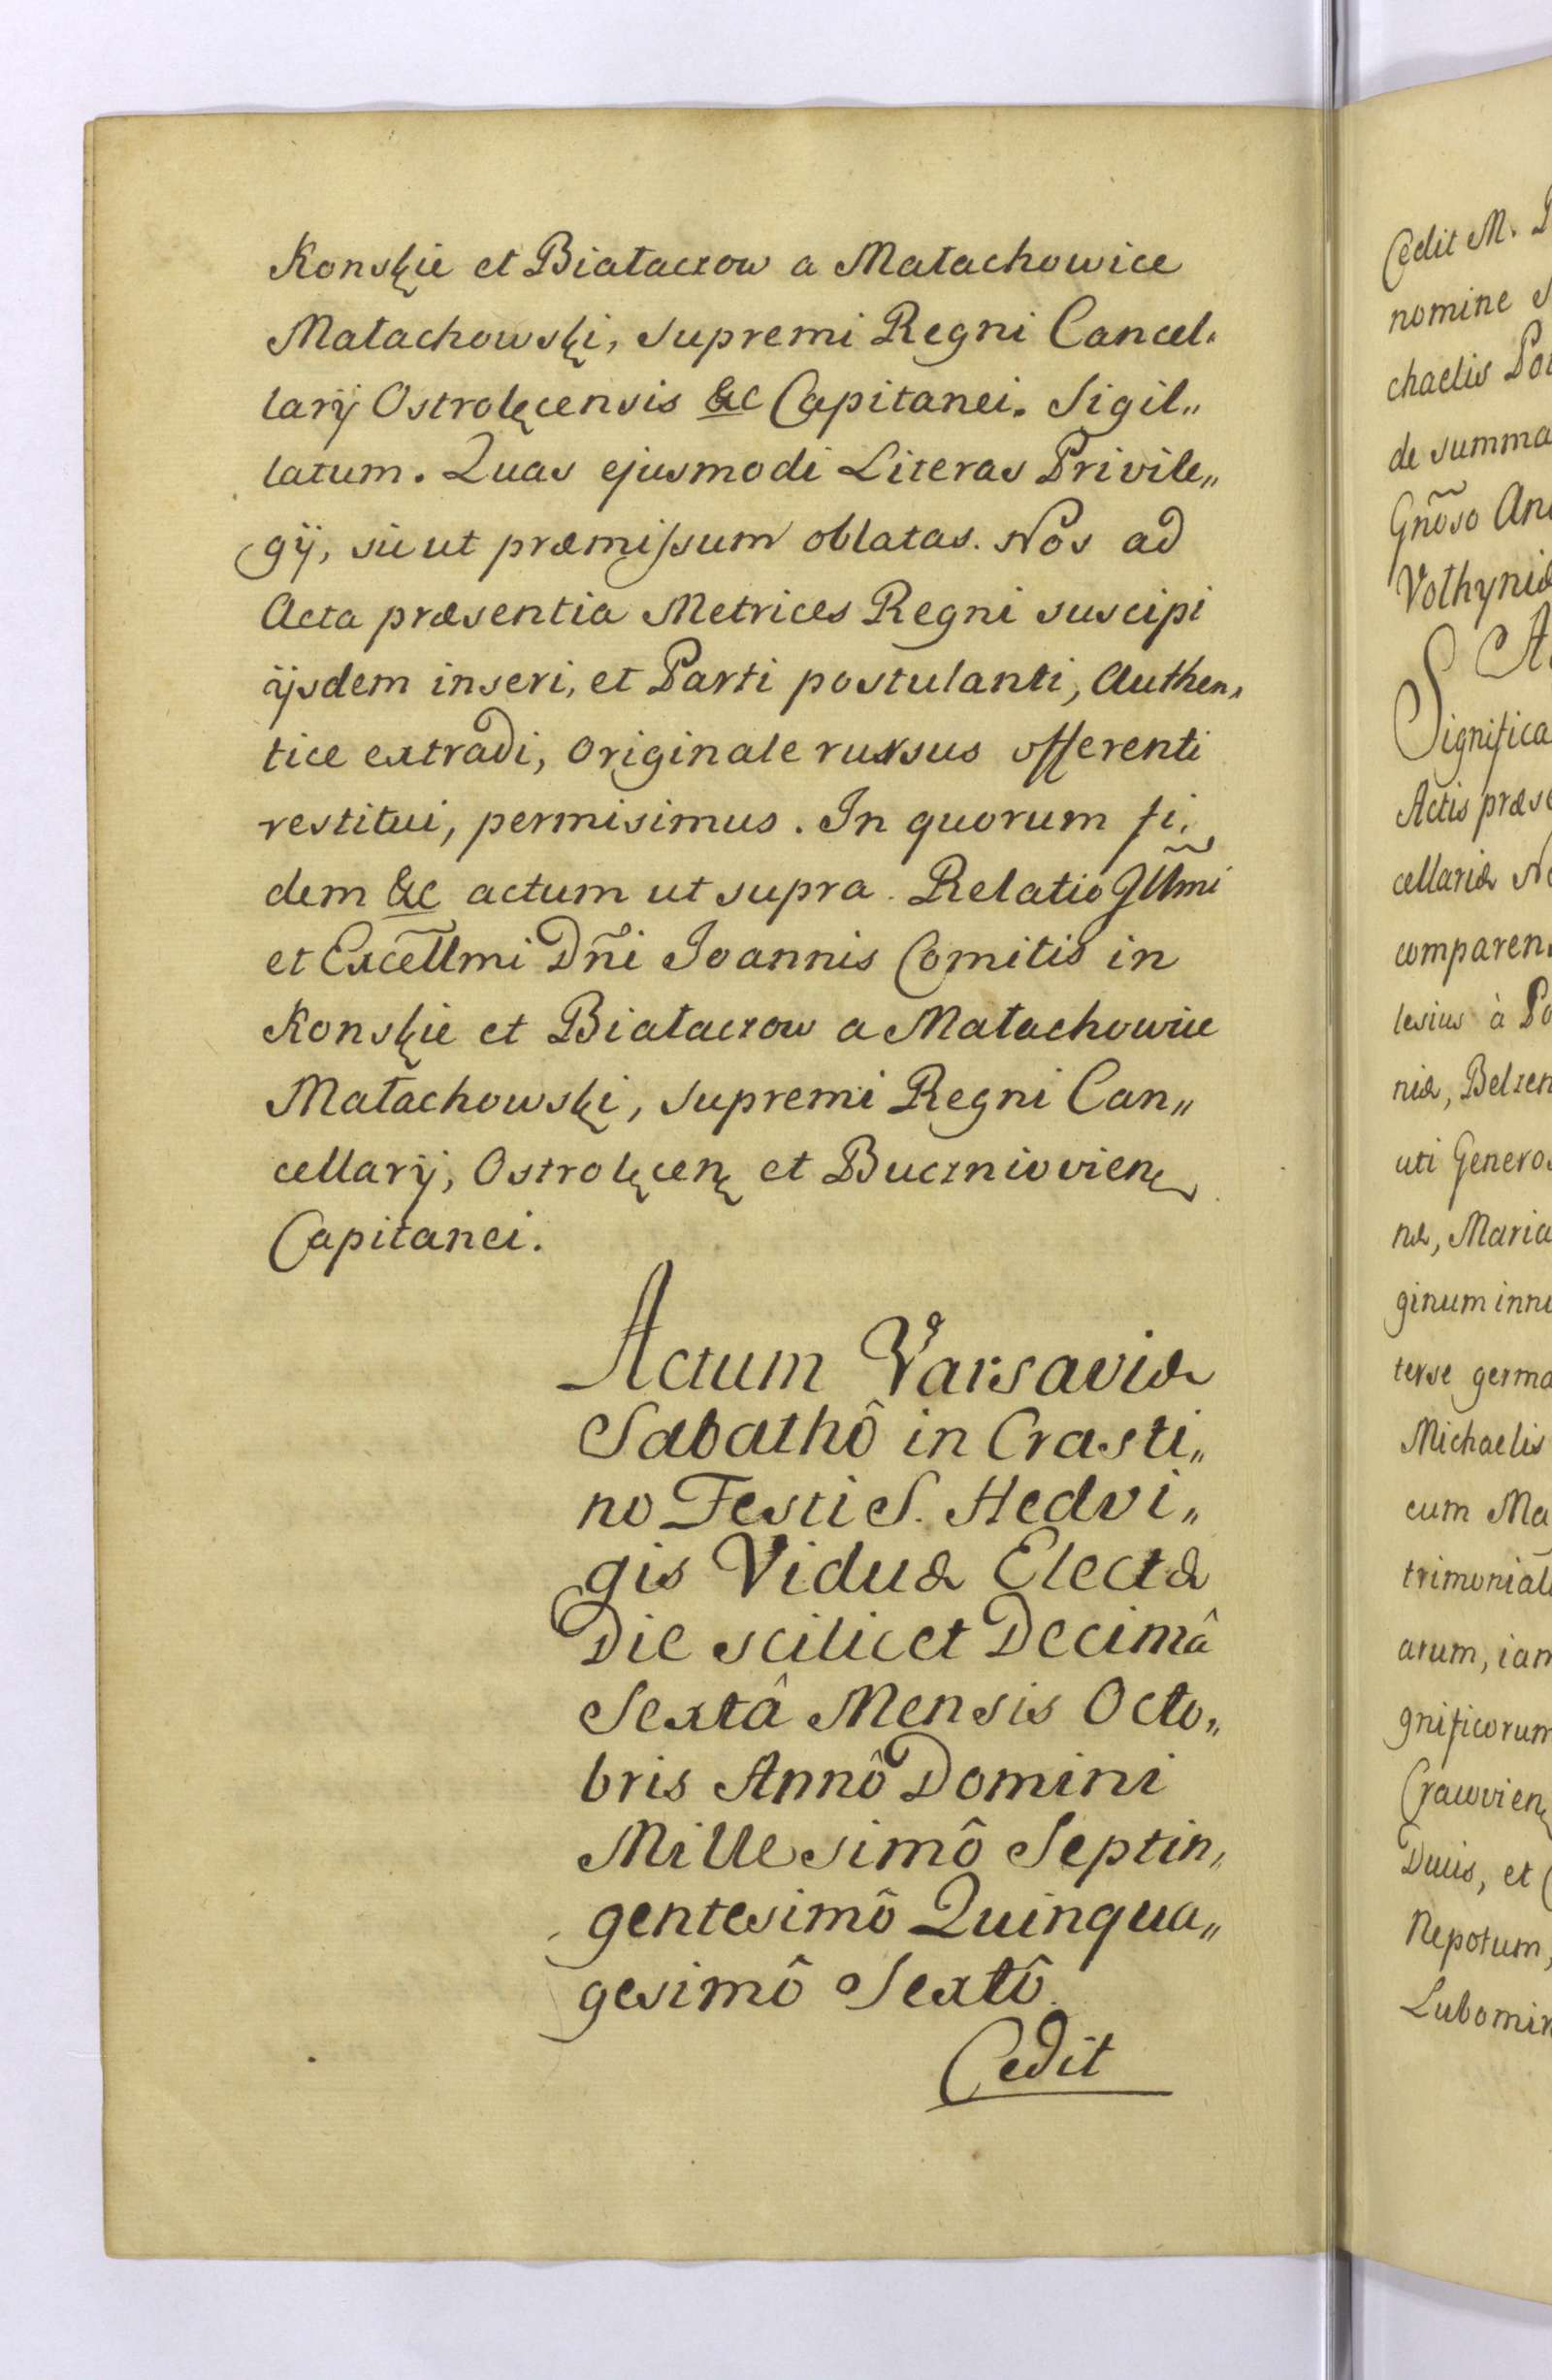 Konskie et Białaczow a Małachowice
Małachowski, Supremi Regni Cancel„
larij Ostrolęcensis &c Capitanei. Sigil„
latum. Quas ejusmodi Literas Privile„
gij, sicut præmissum oblatas. Nos ad
Acta præsentia Metrices Regni suscipi
ijsdem inseri, et Parti postulanti, Authen„
tice extradi, Originale rursus offerenti
restitui, permisimus. In quorum fi„
dem &c actum ut supra. Relatio Jllm̃i
et Excellm̃i Dñi Joannis Comitis in
Konskie et Białaczow a Małachowice
Małachowski, Supremi Regni Can„
cellarij, Ostrolęcen et Buczniovien
Capitanei.
Actum Varsaviæ
Sabathô in Crasti„
no Festi S. Hedvi„
gis Viduæ Electæ
Die scilicet Decimâ
Sextâ Mensis Octo„
bris Annô Domini
Millesimô Septin„
gentesimô Quinqua„
gesimô Sextô.
Cedit
Cedit M.
nomine
chaelis
de summa
Gnõso
Vołhyniæ
Significa
Actis
cellariæ
comparen
lesius à
niæ, Belzen
uti Generos
næ, Maria
ginum
terse germa
Michaelis
cum Ma
trimonial
arum, iam
gnificorum
Cracovien
Ducis, et
Nepotum,
Lubomir